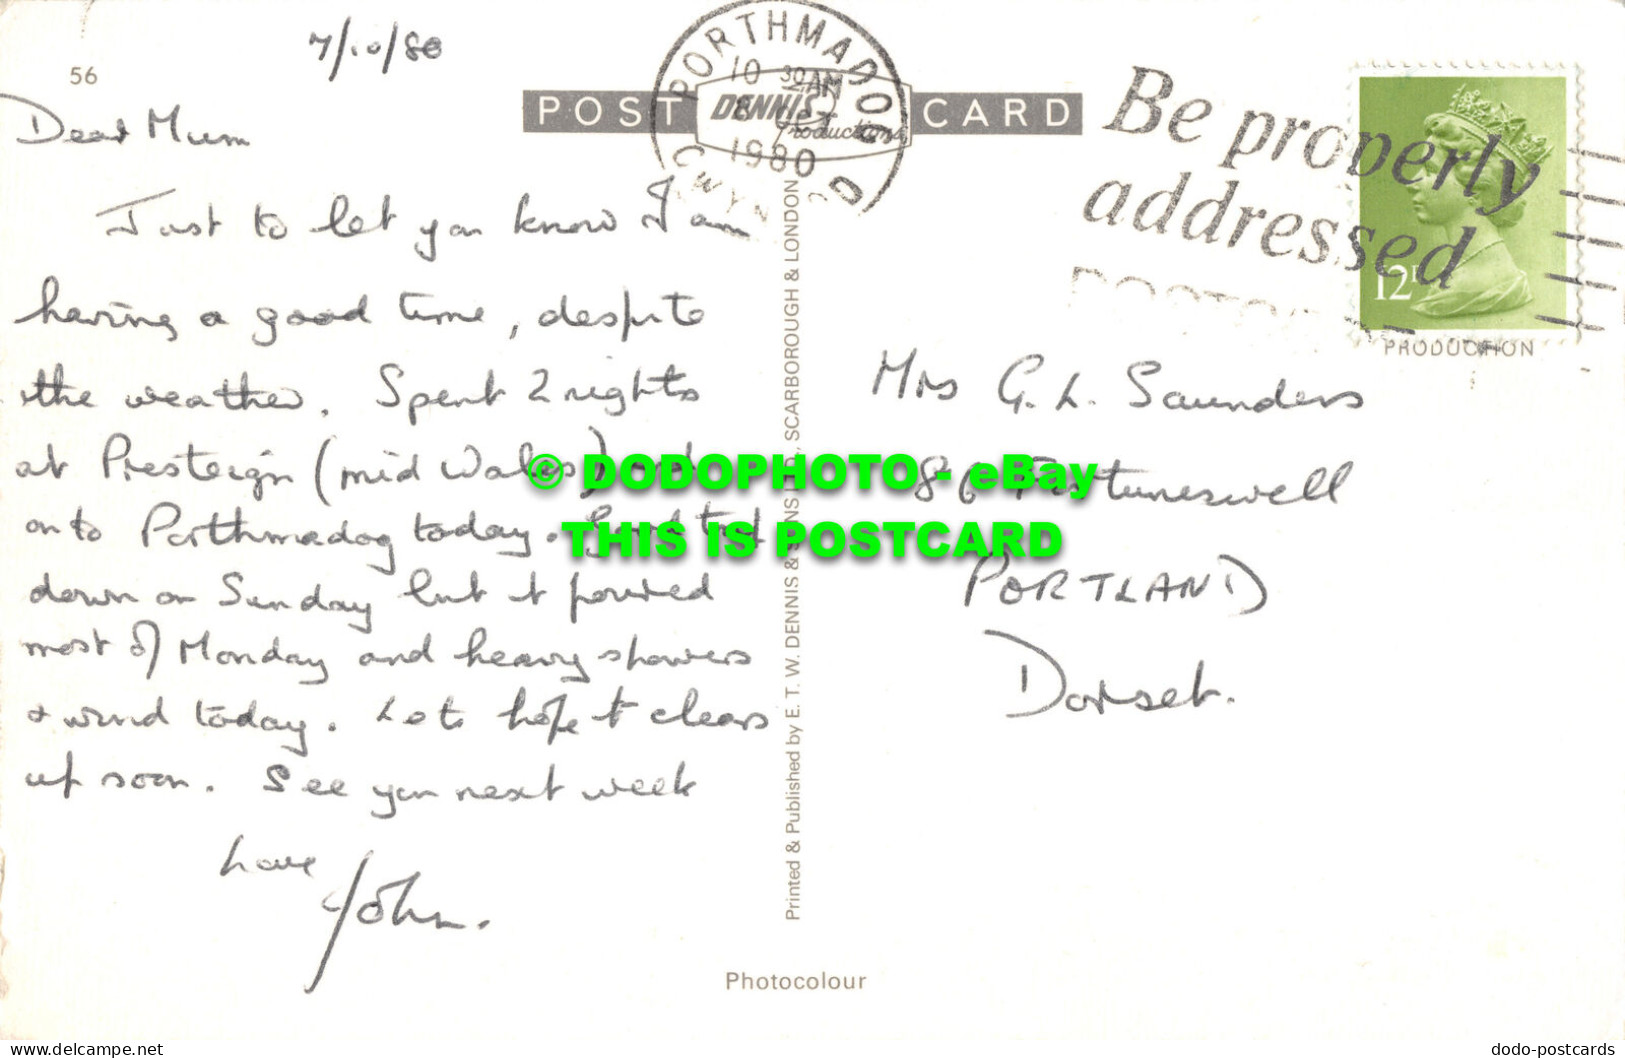 56
7/10/80
Dear Mum
Just to let you know I am
having a good time, despite
the weather. Spent 2 nights
at Presteign (mid Wales) and
on to Porthmadog today. Good trip
down on Sunday but it poured
most of Monday and heavy showers
& wind today. Lets hope it clears
up soon. See you next week
Love
John.
POST CARD
DENNIS
Productions
PORTHMADOG
10 30 AM
1980
GWYN D
Be properly
addressed
12P
PRODUCTION
Mrs G. L. Saunders
86 Fortuneswell
PORTLAND
Dorset.
Printed & Published by E. T. W. DENNIS & SONS LTD., SCARBOROUGH & LONDON
Photocolour
© DODOPHOTO - eBay
THIS IS POSTCARD
www.delcampe.net
dodo-postcards